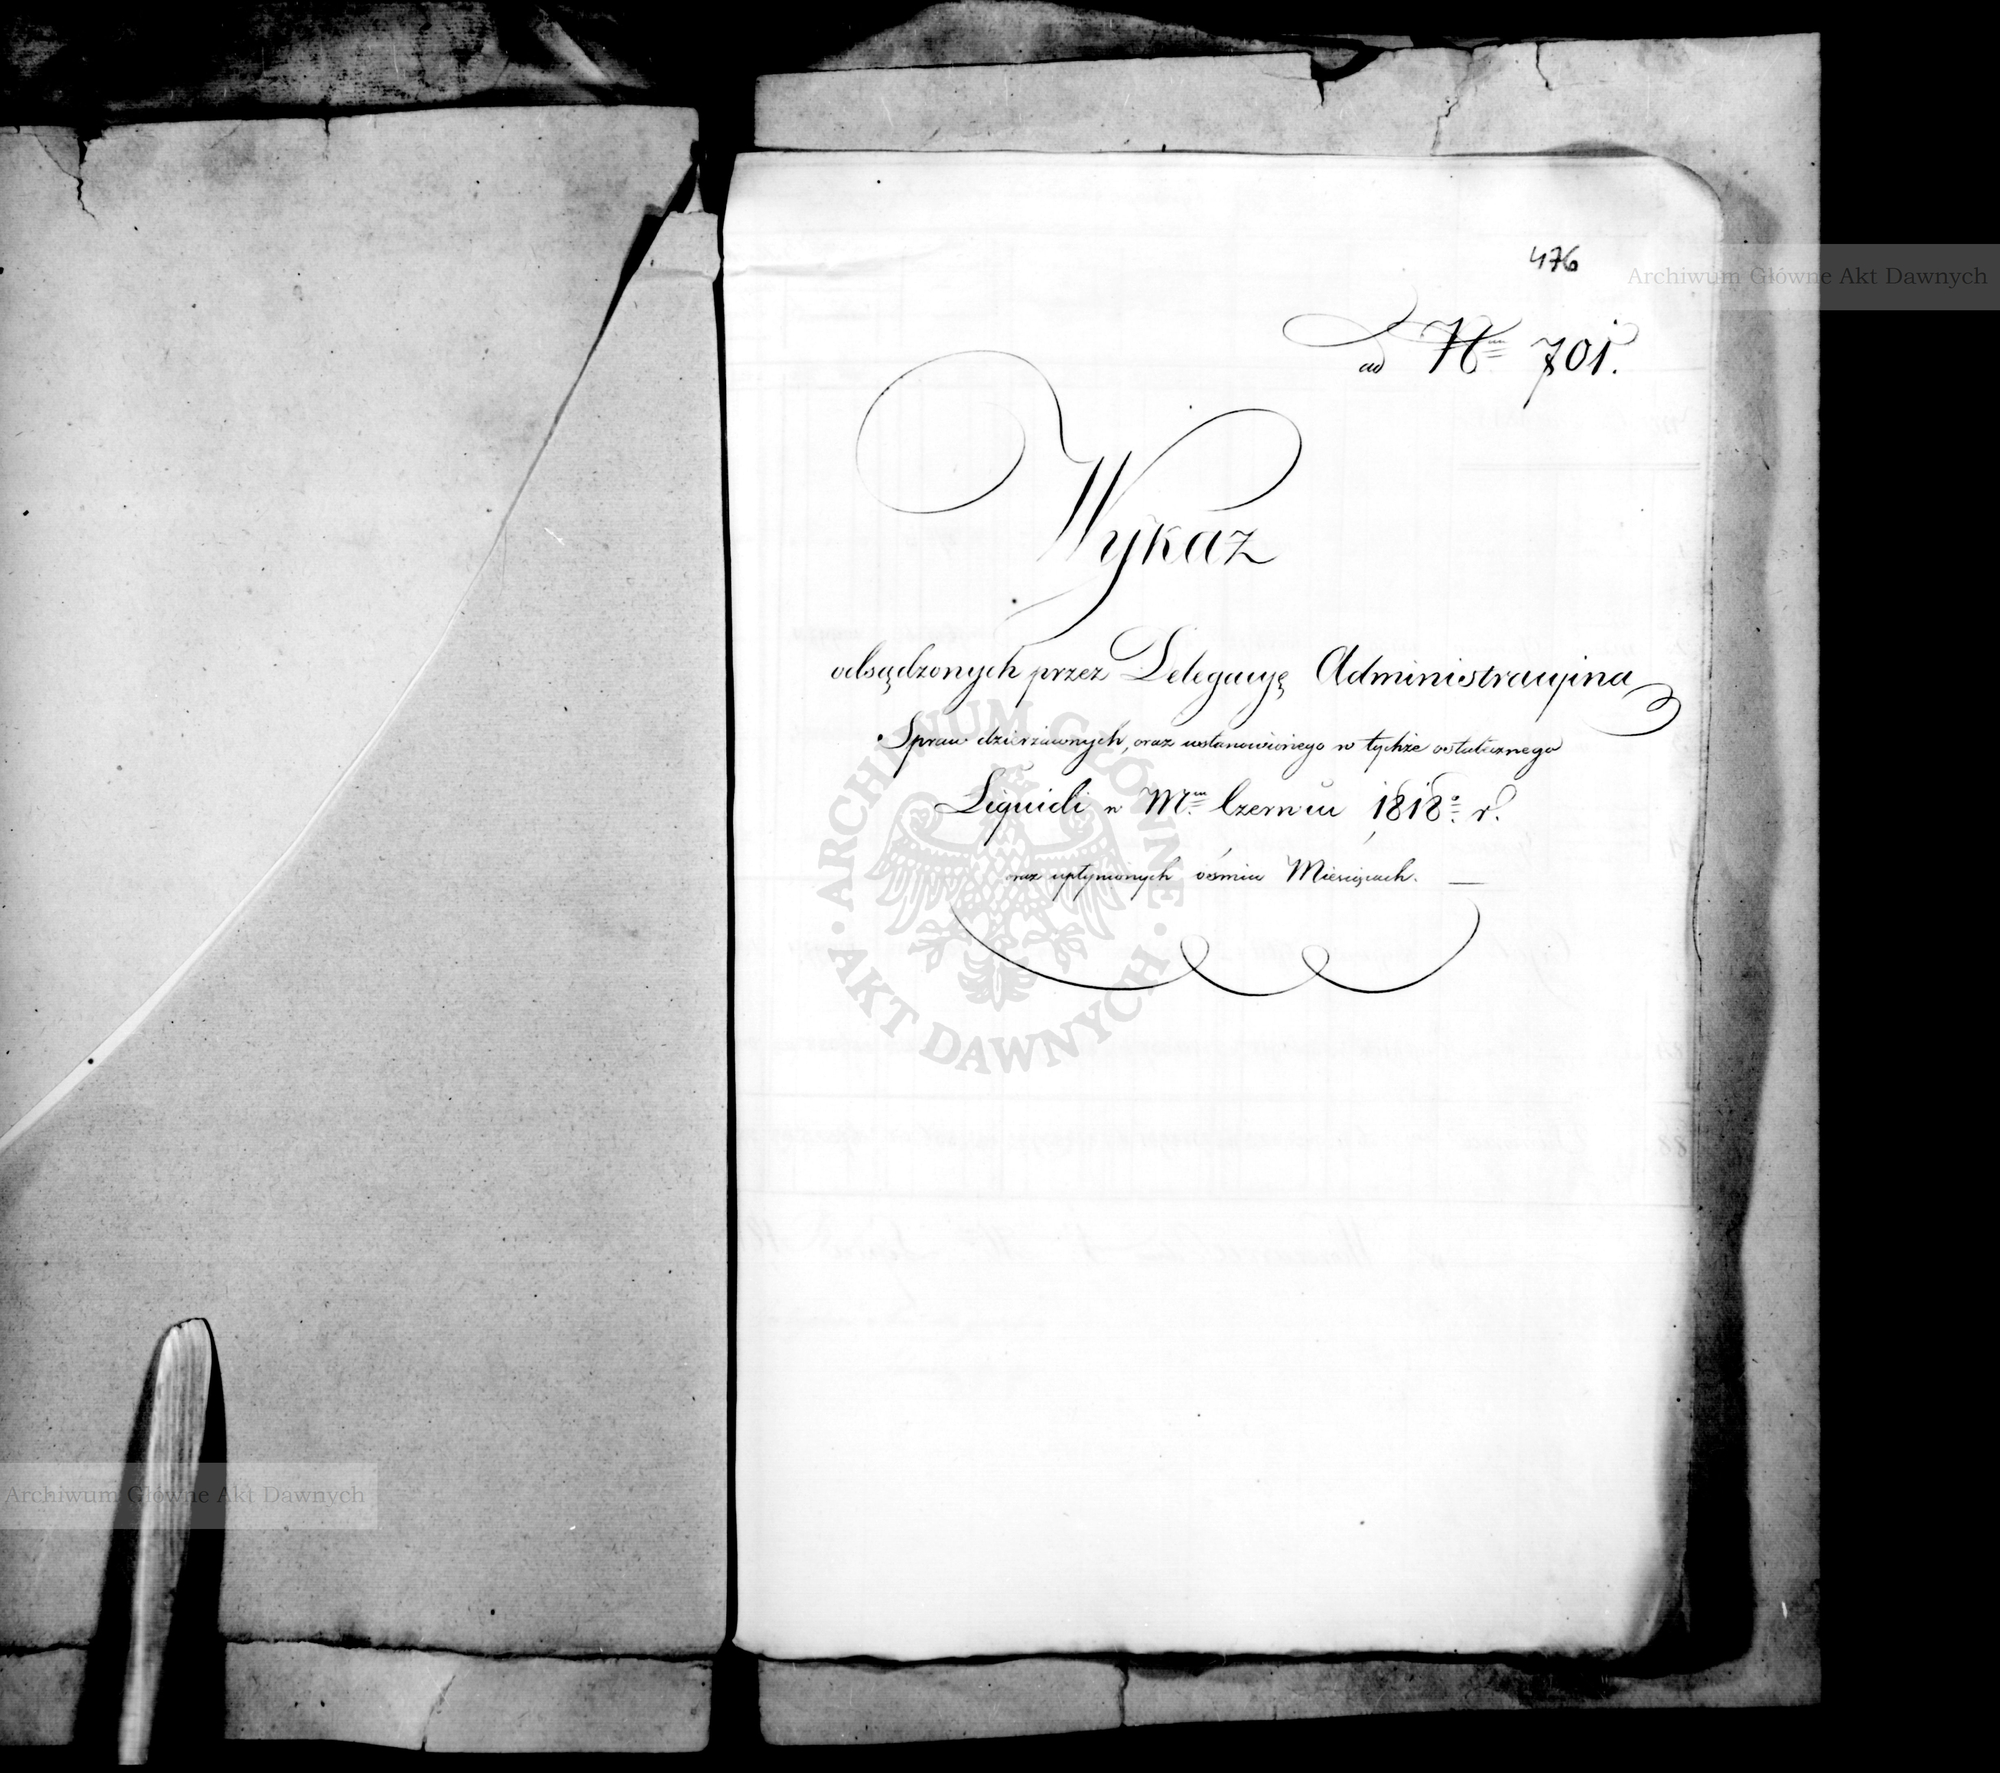 476
ad Nm 701.
Wykaz
odsądzonych przez Delegacyę Administracyiną
Spraw dzierżawnych, oraz ustanowionego w tychże ostatecznego
Liquidi w Mcu Czerwcu 1818o r.
oraz upłynionych ośmiu Miesięcach.
Archiwum Główne Akt Dawnych
ARCHIWUM GŁÓWNE
AKT DAWNYCH
Archiwum Główne Akt Dawnych